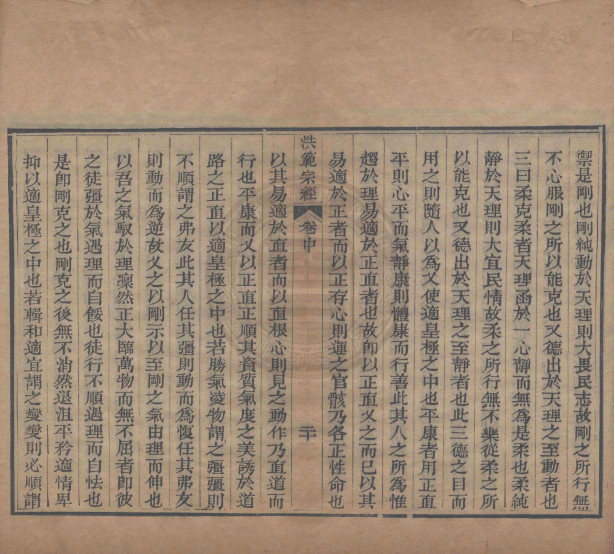 禦是剛也剛純動於天理則大畏民志故剛之所行無
不心服剛之所以能克也又德出於天理之至動者也
三曰柔克柔者天理函於一心靜而無為是柔也柔純
靜於天理則大宜民情故柔之所行無不樂從柔之所
以能克也又德出於天理之至靜者也此三德之目而
用之則隨人以為乂使適皇極之中也平康者用正直
平則心平而氣靜康則體康而行善此其人之所為惟
趨於理易適於正直者也故即以正直乂之而已以其
易適於正者而以正存心則運之官骸乃各正性命也
洪範宗經
卷中
二十
以其易適於直者而以直根心則見之動作乃直道而
行也平康而又以正直正順其資質氣度之美誘於道
路之正直以適皇極之中也若勝氣凌物謂之彊彊則
不順謂之弗友此其人任其彊則動而為愎任其弗友
則動而為逆故乂之以剛示以至剛之氣由理而伸也
以吾之氣馭於理凜然正大臨萬物而無不屈者即彼
之徒彊於氣遇理而自餒也徒行不順遇理而自怯也
是即剛克之也剛克之後無不消然退沮平矜適情卑
抑以適皇極之中也若輯和適宜謂之燮燮則必順謂